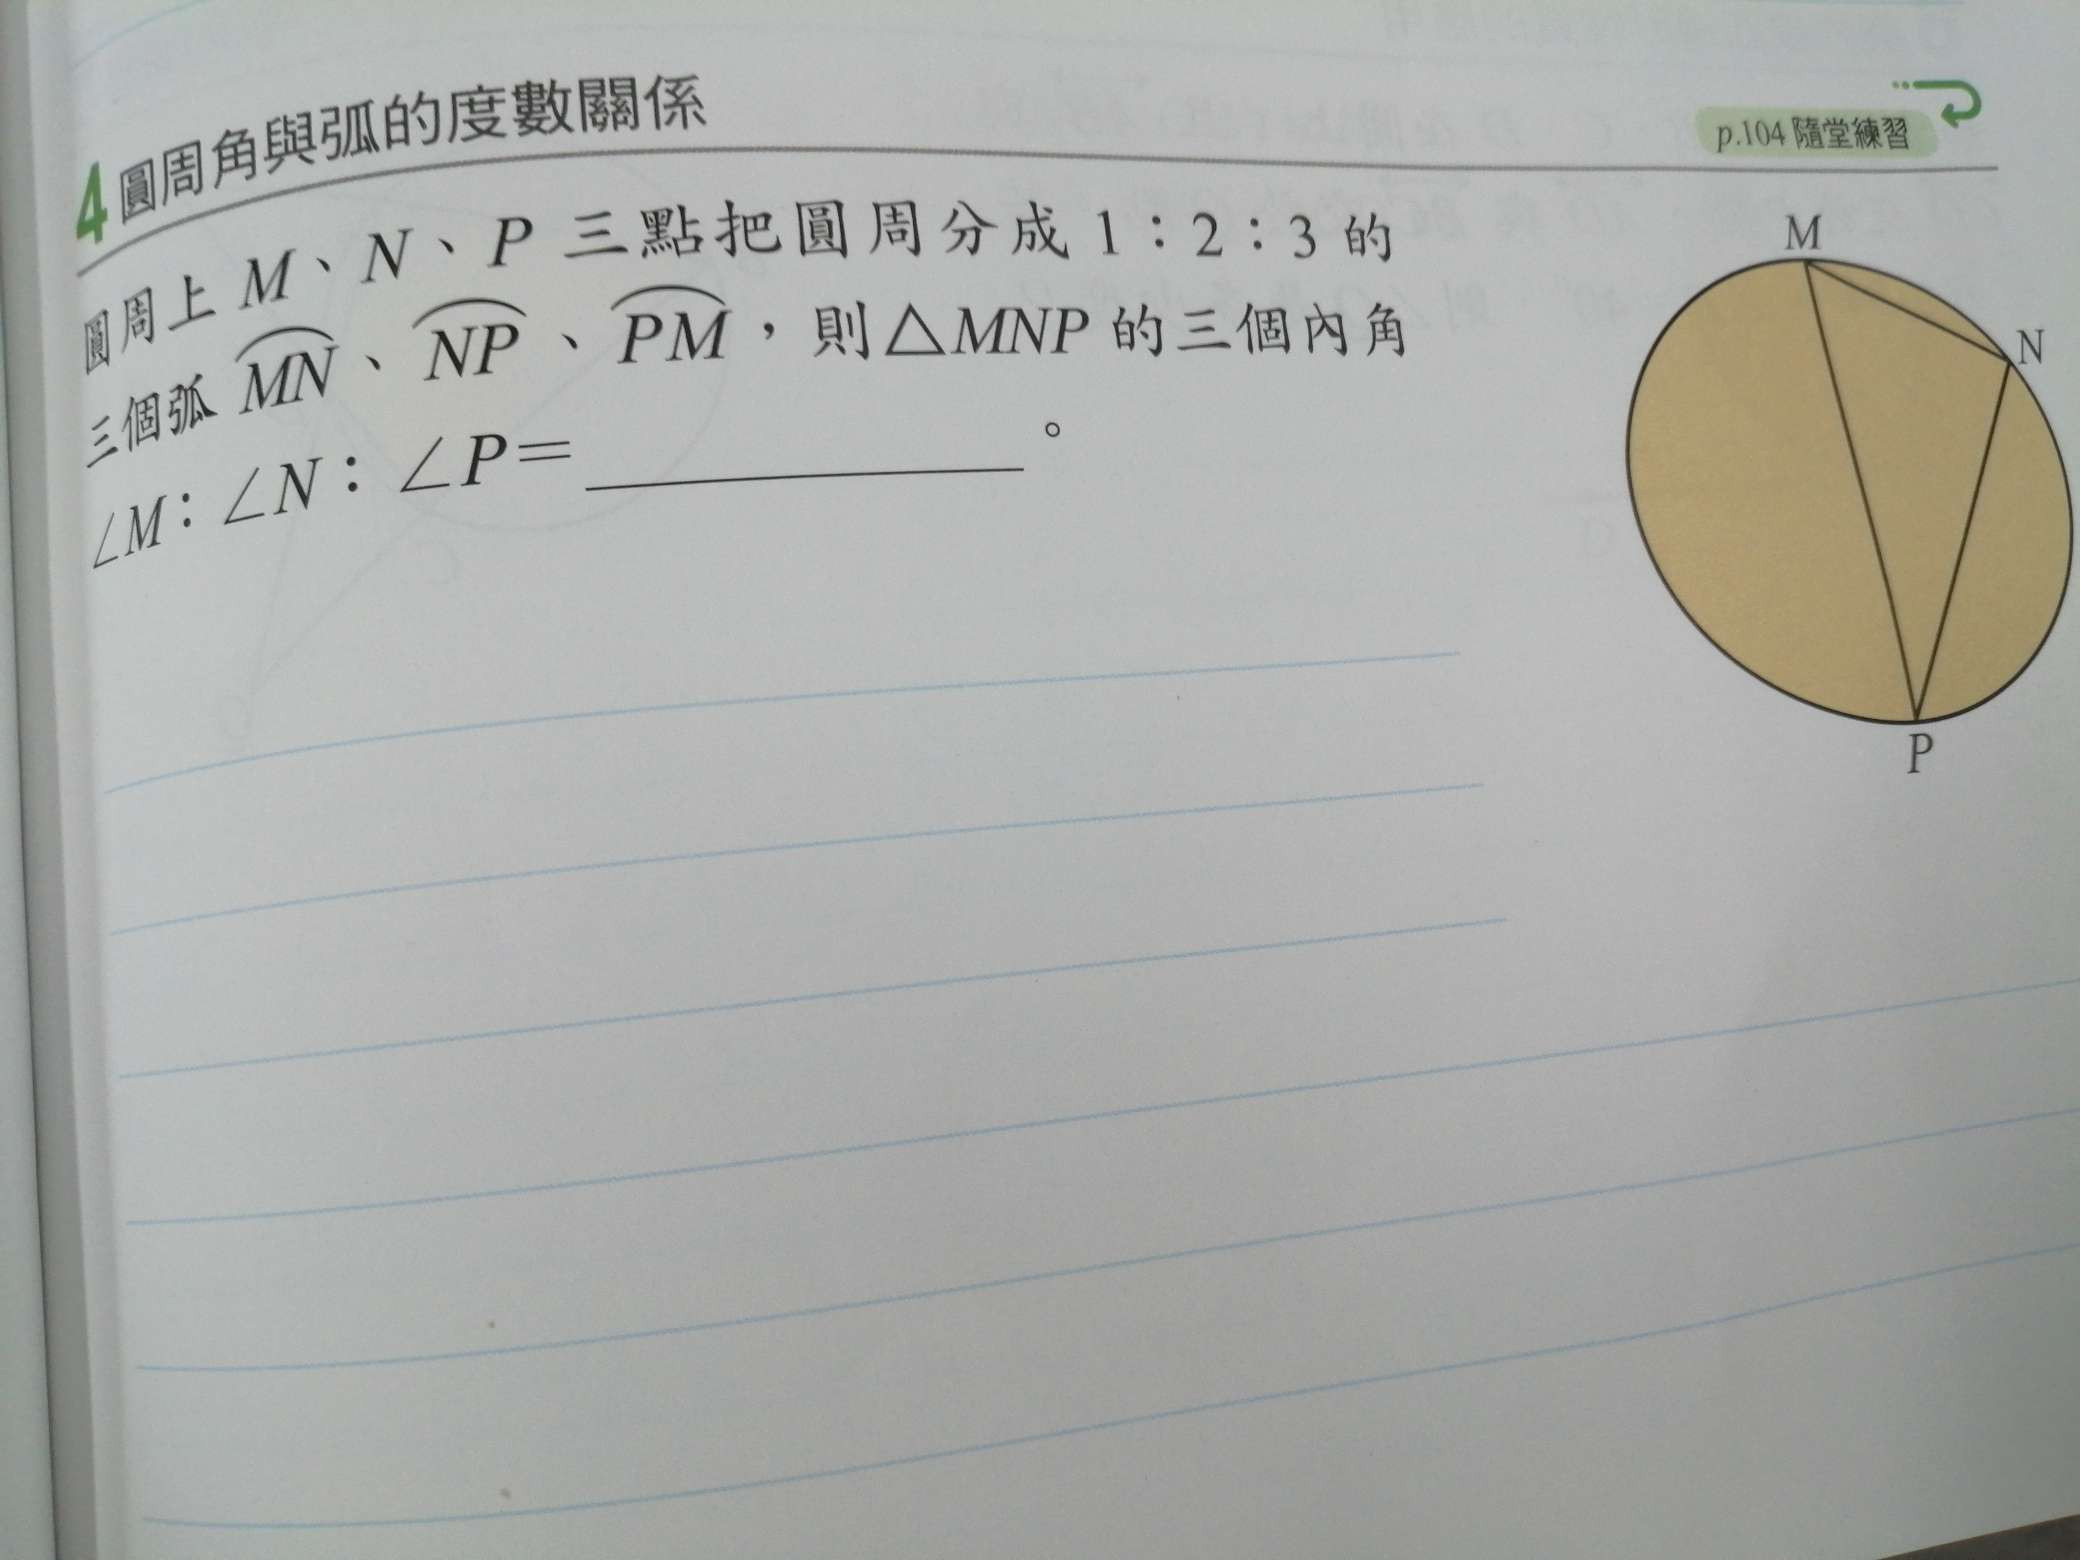 4 圓周角與弧的度數關係
p.104 隨堂練習
圓周上 M、N、P 三點把圓周分成 1：2：3 的
三個弧 MN、NP、PM，則△MNP 的三個內角
∠M：∠N：∠P＝＿＿＿＿＿＿。
M
N
P